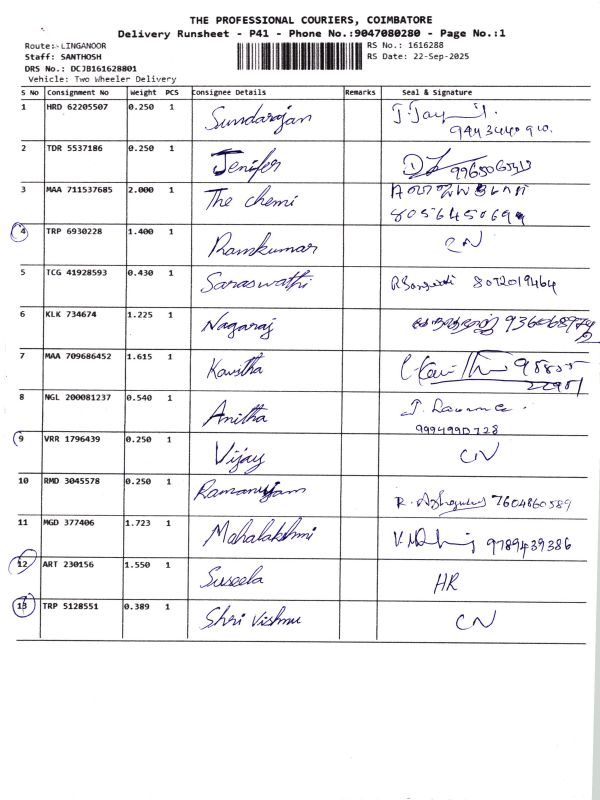 THE PROFESSIONAL COURIERS, COIMBATORE
Delivery Runsheet - P41 - Phone No.:9047080280 - Page No.:1
Route:- LINGANOOR
RS No.: 1616288
Staff: SANTHOSH
RS Date: 22-Sep-2025
DRS No.: DCJB161628801
Vehicle: Two Wheeler Delivery
S No Consignment No Weight PCS Consignee Details Remarks Seal & Signature
1 HRD 62205507 0.250 1 Sundarajan
2 TDR 5537186 0.250 1 Jenifer
3 MAA 711537685 2.000 1 The chemi
4 TRP 6930228 1.400 1 Ramkumar CN
5 TCG 41928593 0.430 1 Saraswathi 8072019464
6 KLK 734674 1.225 1 Nagaraj
7 MAA 709686452 1.615 1 Kavitha
8 NGL 200081237 0.540 1 Anitha J. Lawrence
9994990728
9 VRR 1796439 0.250 1 Vijay CN
10 RMD 3045578 0.250 1 Ramanujam R. 7604860589
11 MGD 377406 1.723 1 Mahalakshmi 9789439386
12 ART 230156 1.550 1 Suseela HR
13 TRP 5128551 0.389 1 Shri Vishnu CN